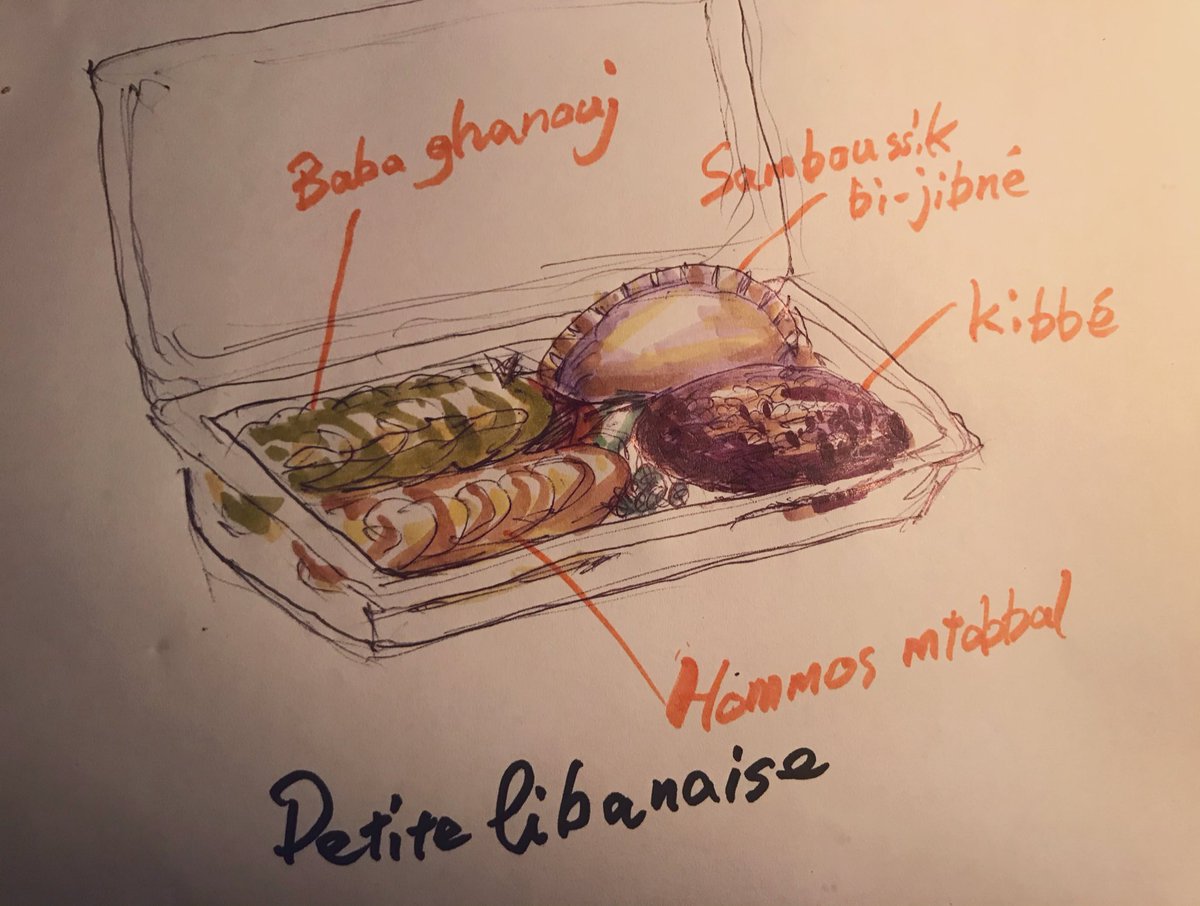 Baba ghanouj
Samboussik
bi-jibné
kibbé
Hommos mtabbal
Petite libanaise